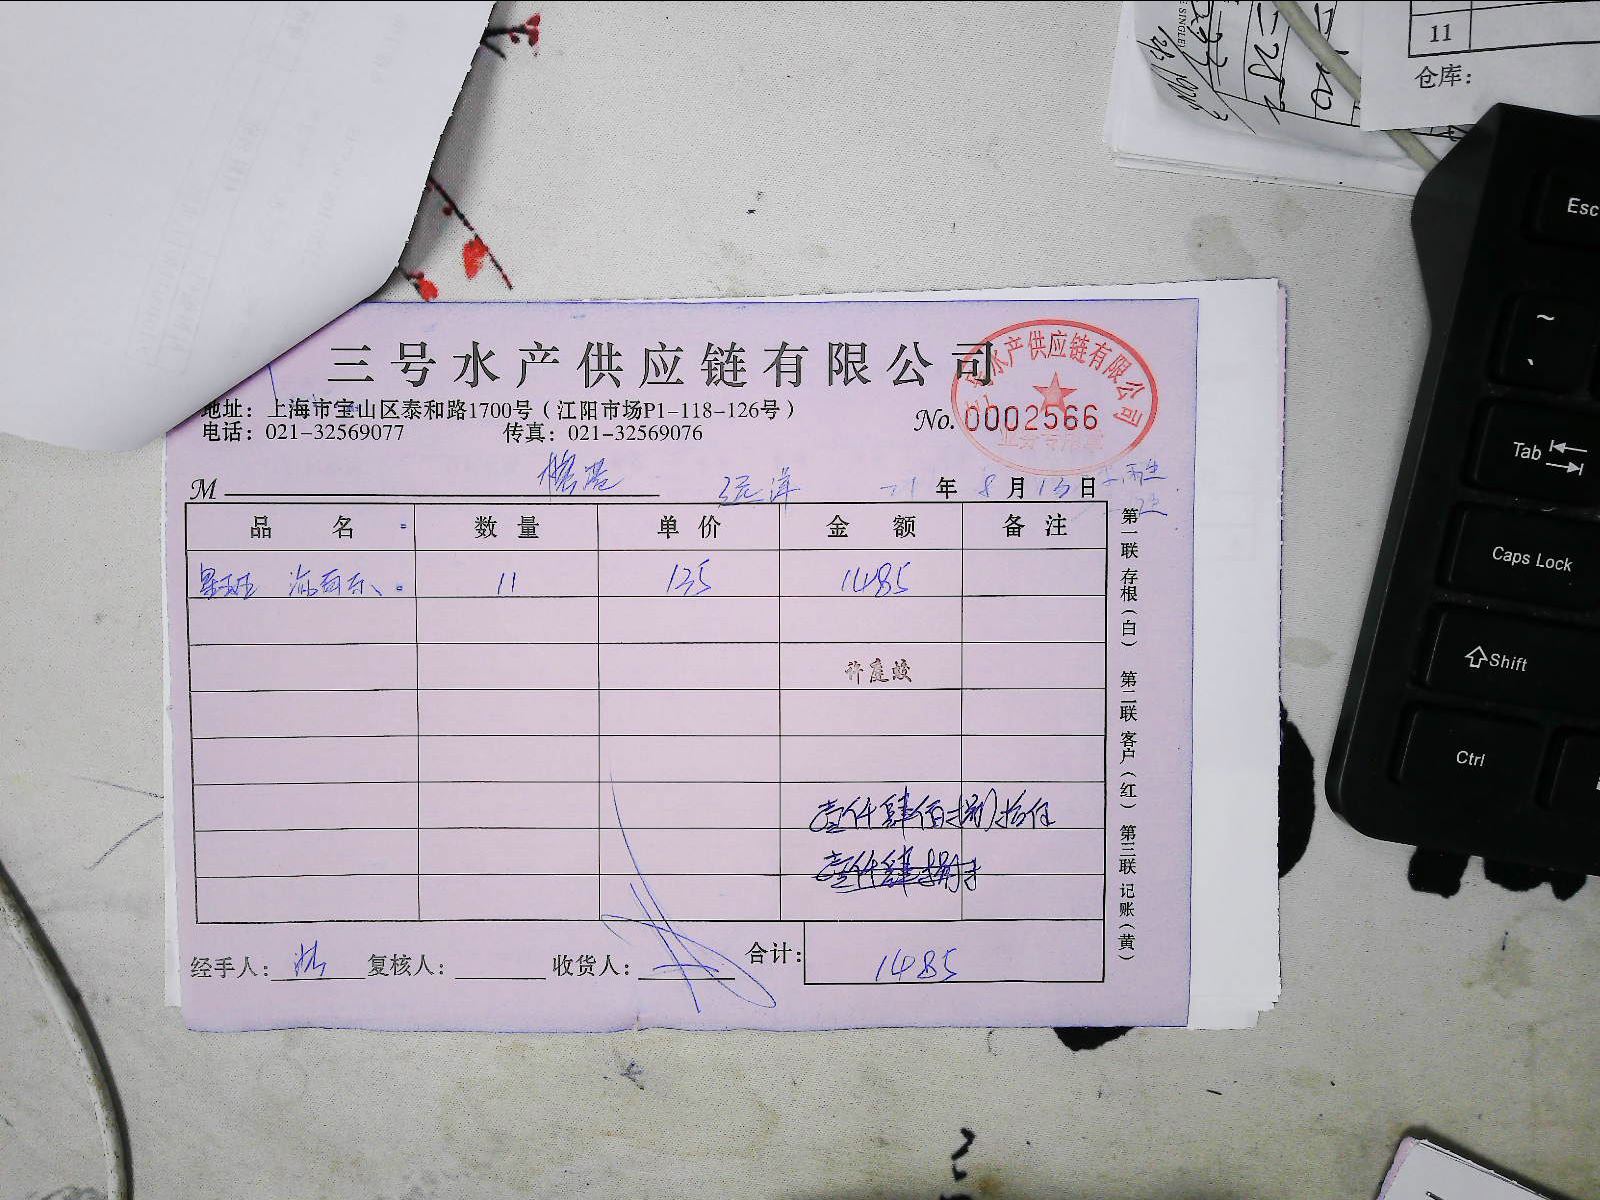 三号水产供应链有限公司
地址：上海市宝山区泰和路1700号（江阳市场P1-118-126号）
电话：021-32569077 传真：021-32569076
No. 0002566
水产供应链有限公司
M 远洋 21年8月13日
品名 数量 单价 金额 备注
11 135 1485
许庭蛟
壹仟肆佰捌拾伍
壹仟肆捌
经手人： 复核人： 收货人： 合计： 1485
第一联 存根（白） 第二联 客户（红） 第三联 记账（黄）
11
仓库：
Esc
~
Tab
Caps Lock
Shift
Ctrl